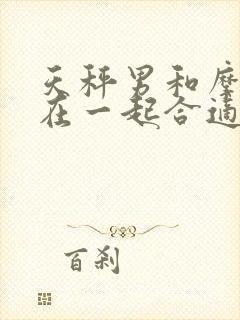 天秤男和
在一起合适
百刹